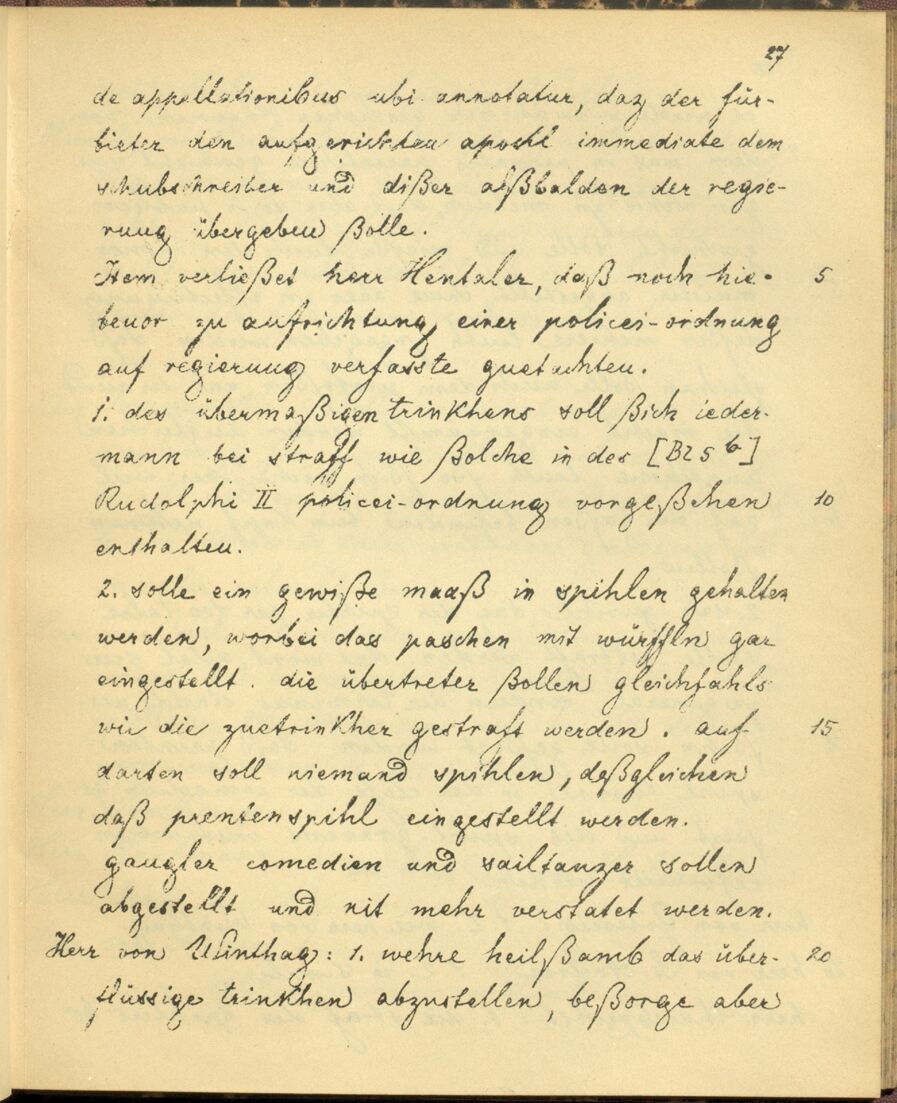 27
de appellationibus ubi annotatur, daz der für-
bieter den aufgerichten apostl immediate dem
schubschreiber und dißer alßbalden der regie-
rung übergeben ßolle.
Item verließet herr Hentaler, daß noch hie- 5
beuor zu aufrichtung einer policei-ordnung
auf regierung verfasste guetachten.
1. des übermaßigen trinkhens soll ßich ieder-
mann bei straff wie ßolche in des [Bl 5 b]
Rudolphi II policei-ordnung vorgeßehen 10
enthalten.
2. solle ein gewiße maaß in spihlen gehalten
werden, worbei das paschen mit würffln gar
eingestellt. die übertreter ßollen gleichfahls
wie die zuetrinkher gestraft werden. auf 15
darten soll niemand spihlen, deßgleichen
daß prentenspihl eingestellt werden.
gaugler comedien und sailtanzer sollen
abgestellt und nit mehr verstatet werden.
Herr von Winthag: 1. wehre heilßamb das über- 20
flüssige trinkhen abzustellen, beßorge aber